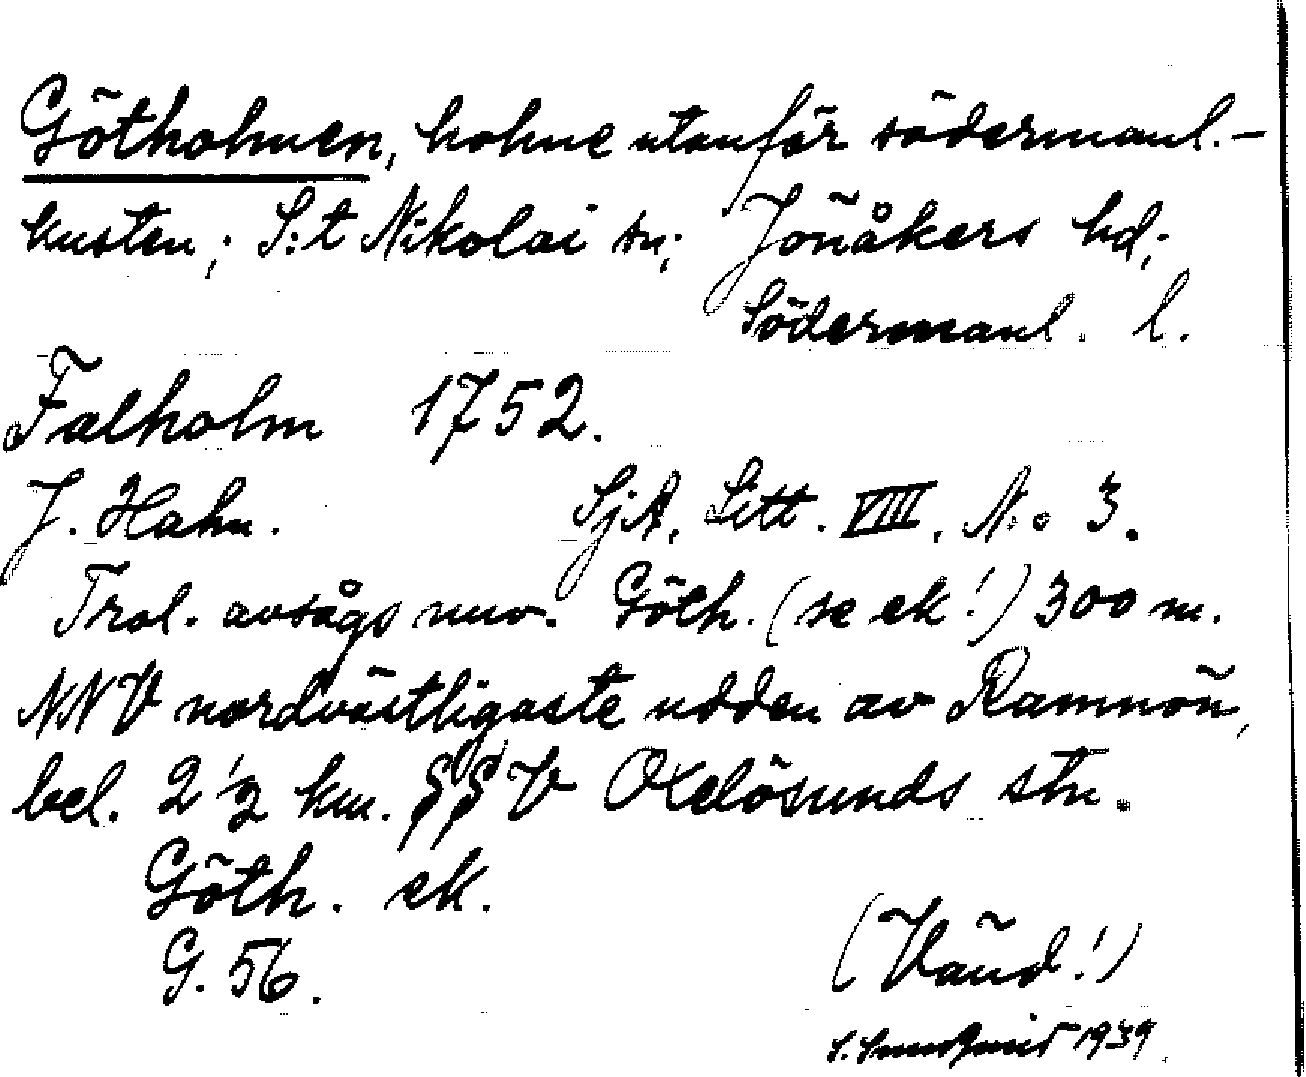 Götholmen, holme utanför södermanl.-
kusten; S:t Nikolai sn; Jönåkers hd;
Södermanl. l.
Falholm 1752.
J. Hahn. SjA, Litt. VIII. No 3.
Trol. avsågs nuv. Göth. (se ek!) 300 m.
NNV nordvästligaste udden av Ramnön,
bel. 2 1/2 km. SSV Oxelösunds stn.
Göth. ek.
G. 56.
(Vänd!)
1939